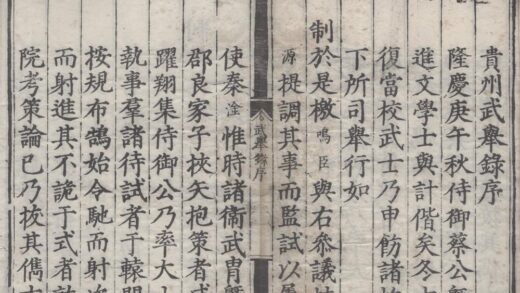 貴州武舉錄序
隆慶庚午秋侍御蔡公
進文學士與計偕矣冬
復當校武士乃申飭諸
下所司舉行如
制於是檄鳴臣與右參議
源提調其事而監試以
武舉錄序
使秦淦惟時諸衛武冑
郡良家子挾矢抱策者
躍翔集侍御公乃率大
執事羣諸待試者于轅
按規布鵠始令馳而射
而射進其不詭于式者
院考策論已乃拔其儁